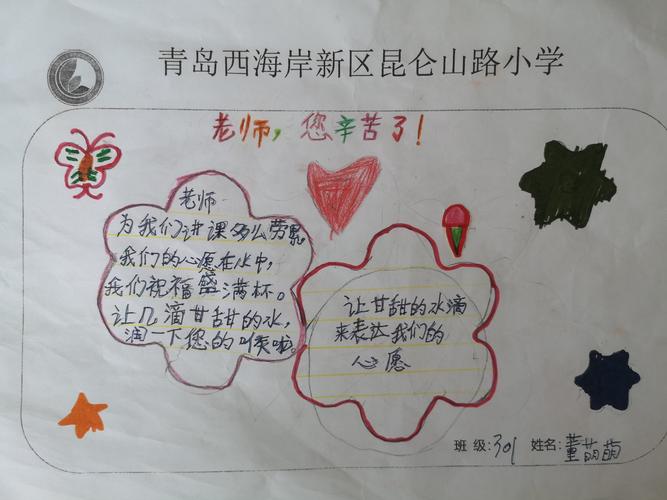 青岛西海岸新区昆仑山路小学
老师，您辛苦了！
老师
为我们讲课多么劳累，
我们的心愿在水中，
我们祝福盛满杯。
让几滴甘甜的水，
润一下您的喉咙。
让甘甜的水滴
来表达我们的
心愿
班级:301 姓名:董萌萌